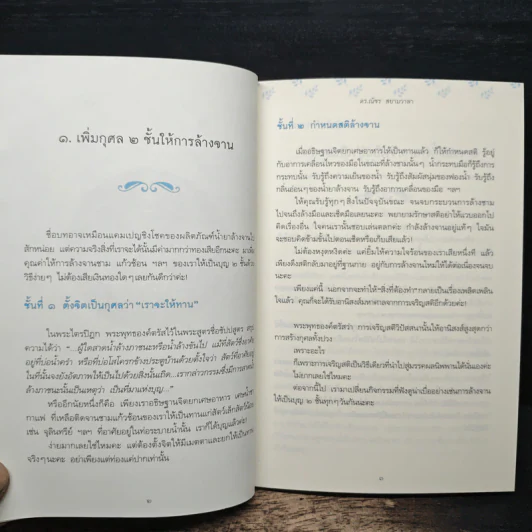 ๑. เพิ่มกุศล ๒ ชั้นให้การล้างจาน
ชื่อบทอาจเหมือนแคมเปญชิงโชคของผลิตภัณฑ์น้ำยาล้างจานไป
สักหน่อย แต่ความจริงสิ่งที่เราจะได้นั้นมีค่ามากกว่าทองเสียอีกนะคะ มาเพิ่ม
คุณค่าให้การล้างจาน ชาม แก้วน้ำ ฯลฯ ของเราให้เป็นบุญ ๒ ชั้นด้วย
วิธีง่ายๆ ไม่ต้องเสียเงินทองใดๆ เลยกันดีกว่าค่ะ!
ชั้นที่ ๑ ตั้งจิตเป็นกุศลว่า "เราจะให้ทาน"
ในพระไตรปิฎก พระพุทธองค์ตรัสไว้ในพระสูตรชื่อชัปปสูตร
ความได้ว่า "...ผู้ใดสาดน้ำล้างภาชนะหรือน้ำล้างขันไป แม้ที่สัตว์ซึ่งอาศัย
อยู่ที่บ่อน้ำครำ หรือที่บ่อโสโครกข้างประตูบ้านด้วยตั้งใจว่า สัตว์ที่อาศัยอยู่
ในที่นั้นจงยังอัตภาพให้เป็นไปด้วยสิ่งนั้นเถิด...เรากล่าวกรรมซึ่งมีการสาดน้ำ
ล้างภาชนะนั้นเป็นเหตุว่า เป็นที่มาแห่งบุญ..."
หรืออีกนัยหนึ่งก็คือ เพียงเราอธิษฐานจิตยกเศษอาหาร เศษน้ำชา
กาแฟ ที่เหลือติดจานชามแก้วช้อนของเราให้เป็นทานแก่สัตว์เล็กสัตว์น้อย
เช่น จุลินทรีย์ ฯลฯ ที่อาศัยอยู่ในท่อระบายน้ำนั้น เราก็ได้บุญแล้วค่ะ
ง่ายมากเลยใช่ไหมคะ แต่ต้องตั้งจิตให้มีเมตตาและยกให้เป็นทาน
จริงๆ นะคะ อย่าเพียงแค่ท่องแค่ปากเท่านั้น
๒
ดร.ณัชร สยามวาลา
ชั้นที่ ๒ กำหนดสติล้างจาน
เมื่ออธิษฐานจิตยกเศษอาหารให้เป็นทานแล้ว ก็ให้กำหนดสติ รู้อยู่
กับอาการเคลื่อนไหวของมือในขณะที่ล้างชามนั้นๆ น้ำกระทบมือก็รู้ถึงการ
กระทบนั้น รับรู้ถึงความเย็นของน้ำ รับรู้ถึงสัมผัสนุ่มของฟองน้ำ รับรู้ถึง
กลิ่นอ่อนๆ ของน้ำยาล้างจาน รับรู้ถึงอาการเคลื่อนของมือ ฯลฯ
ให้คุณรับรู้ทุกๆ สิ่งในปัจจุบันขณะ จนจบกระบวนการล้างชาม
ไปจนถึงล้างมือและเช็ดมือเลยนะคะ พยายามรักษาสติอย่าให้แวบออกไป
คิดเรื่องอื่น ใจคนเรานั้นชอบเล่นตลกค่ะ กำลังล้างจานอยู่แท้ๆ ใจมัน
จะชอบคิดข้ามขั้นไปตอนเช็ดหรือเก็บเสียแล้ว!
ไม่ต้องหงุดหงิดค่ะ แค่ยิ้มให้ความไร้เดียงสาของใจเราเสียทีหนึ่ง แล้ว
เพียงดึงสติกลับมาอยู่ที่ฐานกาย อยู่กับการล้างจานใหม่ให้ได้ต่อเนื่องจนจบ
นะคะ
เพียงแค่นี้ นอกจากจะทำให้"สิ่งที่ต้องทำ"กลายเป็นเรื่องเพลิดเพลิน
ใจแล้ว คุณก็จะได้รับอานิสงส์มหาศาลจากการเจริญสติอีกด้วยค่ะ!
พระพุทธองค์ตรัสว่า การเจริญสติวิปัสสนานั้นให้อานิสงส์สูงสุดกว่า
การสร้างกุศลทั้งปวง
เพราะอะไร
ก็เพราะการเจริญสติเป็นวิธีเดียวที่นำไปสู่มรรคผลนิพพานได้นั่นเองค่ะ
ไม่ยากเลยใช่ไหมคะ
ต่อจากนี้ไป เรามาเปลี่ยนกิจกรรมที่ฟังดูน่าเบื่ออย่างเช่นการล้างจาน
ให้เป็นบุญ ๒ ชั้นทุกๆ วันกันนะคะ
๓